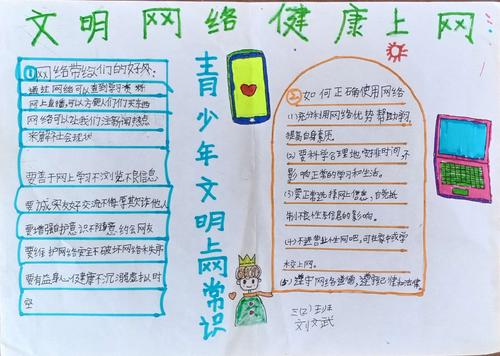 文明网络健康上网
青少年文明上网常识
①网络带给人们的好处:
通过网络可以查到学习资料
网上直播,可以方便人们
网络可以让我们注新闻热点
来解社会现状
要善于网上学习不浏览不良信息
要诚实友好交流不侮辱欺诈他人
要增强护意识不随意约会网友
要维护网络安全不破坏网络秩序
要有益身心健康不沉溺虚拟时
空
二、如何正确使用网络
(1)充分利用网络优势帮助学习,
提高自身素质。
(2)要科学合理地安排时间,不
影响正常的学习和生活。
(3)要正常选择网上信息,自觉抵
制不良信息的影响。
(4)不进营业性网吧,可在家中或学
校上网。
(5)遵守网络道德,遵守纪律和法律。
三(2)班
刘文武